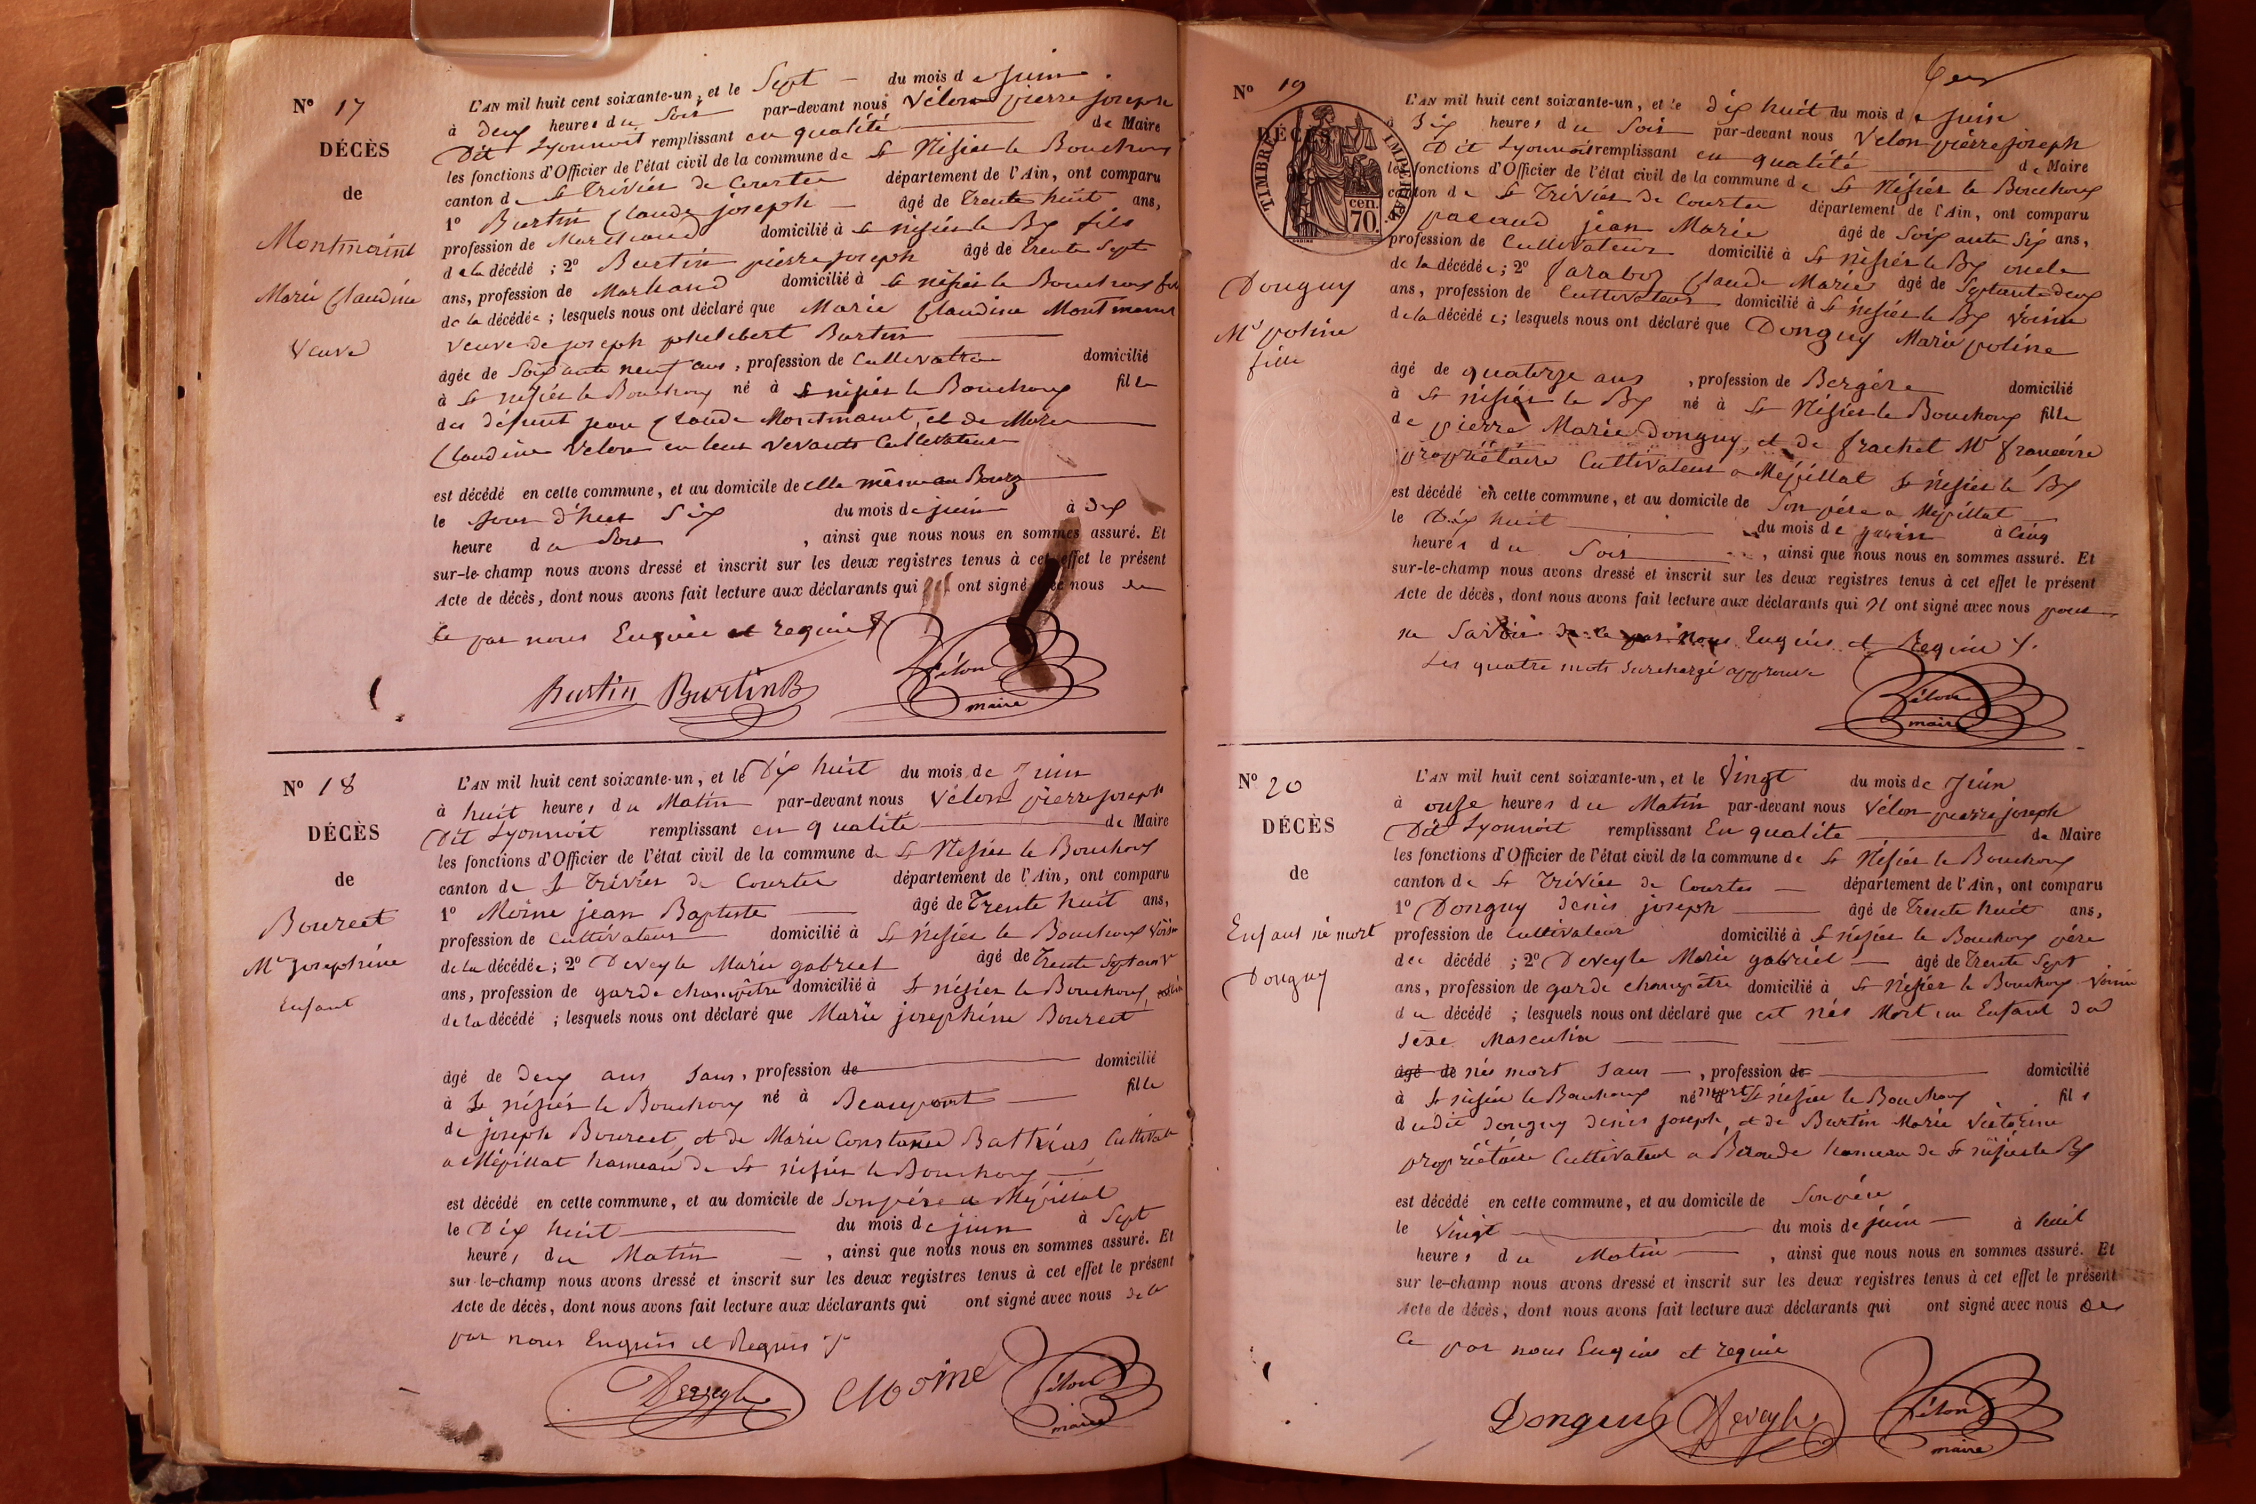 N° 17
DÉCÈS
de
Montmaint
Marie Claudine
Veuve
L'AN mil huit cent soixante-un, et le Sept du mois de Juin
à deux heures du Soir par-devant nous Vélon pierre joseph
Dit Lyonnoit remplissant en qualité de Maire
les fonctions d'Officier de l'état civil de la commune de St Nisier le Bouchoux
canton de St Trivier de Courtes département de l'Ain, ont comparu
1° Burtin Claude joseph âgé de Trente huit ans,
profession de Marchand domicilié à St nisier le Bx fils
de la décédé ; 2° Burtin pierre joseph âgé de trente Sept
ans, profession de Marchand domicilié à St nisier le Bouchoux fils
de la décédée ; lesquels nous ont déclaré que Marie Claudine Montmaint
Veuve de joseph philebert Burtin
âgée de Soixante neuf ans, profession de Cultivatrice domicilié
à St nisier le Bouchoux né à St nisier le Bouchoux fille
des défunt jean Claude Montmaint, et de Marie
Claudine Velon en leur vivants Cultivateur
est décédé en cette commune, et au domicile de elle même au Bourg
le jour d'hier Six du mois de juin à dix
heure du Soir , ainsi que nous nous en sommes assuré. Et
sur-le-champ nous avons dressé et inscrit sur les deux registres tenus à cet effet le présent
Acte de décès, dont nous avons fait lecture aux déclarants qui ont signé avec nous de
ce par nous Enquis et requis
Burtin Burtin B Vélon
maire
N° 18
DÉCÈS
de
Bourcet
Mie Josephine
Enfant
L'AN mil huit cent soixante-un, et le Dix huit du mois de Juin
à huit heures du Matin par-devant nous Vélon pierre joseph
Dit Lyonnoit remplissant en qualité de Maire
les fonctions d'Officier de l'état civil de la commune de St Nisier le Bouchoux
canton de St Trivier de Courtes département de l'Ain, ont comparu
1° Moine jean Baptiste âgé de Trente huit ans,
profession de Cultivateur domicilié à St Nisier le Bouchoux Voisin
de la décédée ; 2° Deveyle Marie gabriel âgé de Trente Sept ans
ans, profession de garde champêtre domicilié à St nisier le Bouchoux
de la décédé ; lesquels nous ont déclaré que Marie josephine Bourcet
âgé de deux ans Sans, profession de domicilié
à St nisier le Bouchoux né à Beaupont fille
de joseph Bourcet, et de Marie Constance Bathias, Cultivat
a Mépillat hameau de St nisier le Bouchoux
est décédé en cette commune, et au domicile de Son père a Mépillat
le Dix huit du mois de juin à Sept
heures du Matin , ainsi que nous nous en sommes assuré. Et
sur-le-champ nous avons dressé et inscrit sur les deux registres tenus à cet effet le présent
Acte de décès, dont nous avons fait lecture aux déclarants qui ont signé avec nous de ce
par nous Enquis et Requis
Deveyle Moine Vélon
maire
N° 19
DÉCÈS
TIMBRE IMPÉRIAL
cen.
70.
Donguy
Mie poline
fille
L'AN mil huit cent soixante-un, et le dix huit du mois de Juin
à Six heures du Soir par-devant nous Velon pierre joseph
Dit Lyonnoit remplissant en qualité de Maire
les fonctions d'Officier de l'état civil de la commune de St Nisier le Bouchoux
canton de St Trivier de Courtes département de l'Ain, ont comparu
pacaud jean Marie âgé de Soixante Six ans,
profession de Cultivateur domicilié à St nisier le Bx oncle
de la décédée ; 2° Claude Marie âgé de Septante deux
ans, profession de Cultivateur domicilié à St nisier le Bx Voisin
de la décédée ; lesquels nous ont déclaré que Donguy Marie poline
âgé de quatorze ans , profession de Bergère domicilié
à St nisier le Bx né à St Nisier le Bouchoux fille
de pierre Marie Donguy, et de frachet Mie francoise
propriétaire Cultivateur a Mépillat St nisier le Bx
est décédé en cette commune, et au domicile de Son père a Mépillat
le Dix huit du mois de juin à Cinq
heures du Soir , ainsi que nous nous en sommes assuré. Et
sur-le-champ nous avons dressé et inscrit sur les deux registres tenus à cet effet le présent
Acte de décès, dont nous avons fait lecture aux déclarants qui N ont signé avec nous pour
ne Savoir de ce par nous Enquis et Requis
Les quatre mots Surchargé approuvé
Vélon
maire
N° 20
DÉCÈS
de
Enfant né mort
Donguy
L'AN mil huit cent soixante-un, et le Vingt du mois de Juin
à onze heures du Matin par-devant nous Vélon pierre joseph
Dit Lyonnoit remplissant En qualité de Maire
les fonctions d'Officier de l'état civil de la commune de St Nisier le Bouchoux
canton de St Trivier de Courtes département de l'Ain, ont comparu
1° Donguy denis joseph âgé de Trente huit ans,
profession de Cultivateur domicilié à St nisier le Bouchoux père
du décédé ; 2° Deveyle Marie gabriel âgé de Trente Sept
ans, profession de garde champêtre domicilié à St Nisier le Bouchoux Voisin
du décédé ; lesquels nous ont déclaré que est nés Mort un Enfant du
Sexe Masculin
âgé de nés mort Sans , profession de domicilié
à St nisier le Bouchoux né mort à St nisier le Bouchoux fils
dudit donguy denis joseph, et de Burtin Marie Victorine
propriétaire Cultivateur a Beroude hameau de St nisier le Bx
est décédé en cette commune, et au domicile de Son père
le Vingt du mois de juin à huit
heures du Matin , ainsi que nous nous en sommes assuré. Et
sur le-champ nous avons dressé et inscrit sur les deux registres tenus à cet effet le présent
Acte de décès, dont nous avons fait lecture aux déclarants qui ont signé avec nous de
ce par nous Enquis et requis
Donguy Deveyle Vélon
maire